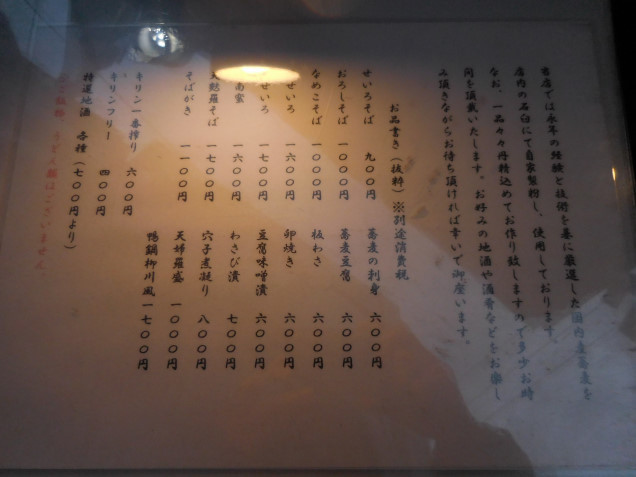 当店では永年の経験と技術を基に厳選した国内産蕎麦を
店内の石臼にて自家製粉し、使用しております。
なお、一品々々丹精込めてお作り致しますので多少お時
間を頂戴いたします。お好みの地酒や酒肴などをお楽し
み頂きながらお待ち頂ければ幸いで御座います。
お品書き(抜粋)※別途消費税
せいろそば 九〇〇円
おろしそば 一〇〇〇円
なめこそば 一〇〇〇円
せいろ 一六〇〇円
せいろ 一七〇〇円
南蛮 一六〇〇円
天麩羅そば 一七〇〇円
そばがき 一一〇〇円
蕎麦の刺身 六〇〇円
蕎麦豆腐 六〇〇円
板わさ 六〇〇円
卵焼き 六〇〇円
豆腐味噌漬 六〇〇円
わさび漬 七〇〇円
穴子煮凝り 八〇〇円
天婦羅盛 一〇〇〇円
鴨鍋柳川風 一七〇〇円
キリン一番搾り 六〇〇円
キリンフリー 四〇〇円
特選地酒 各種(七〇〇円より)
ご飯類、うどん類はございません。